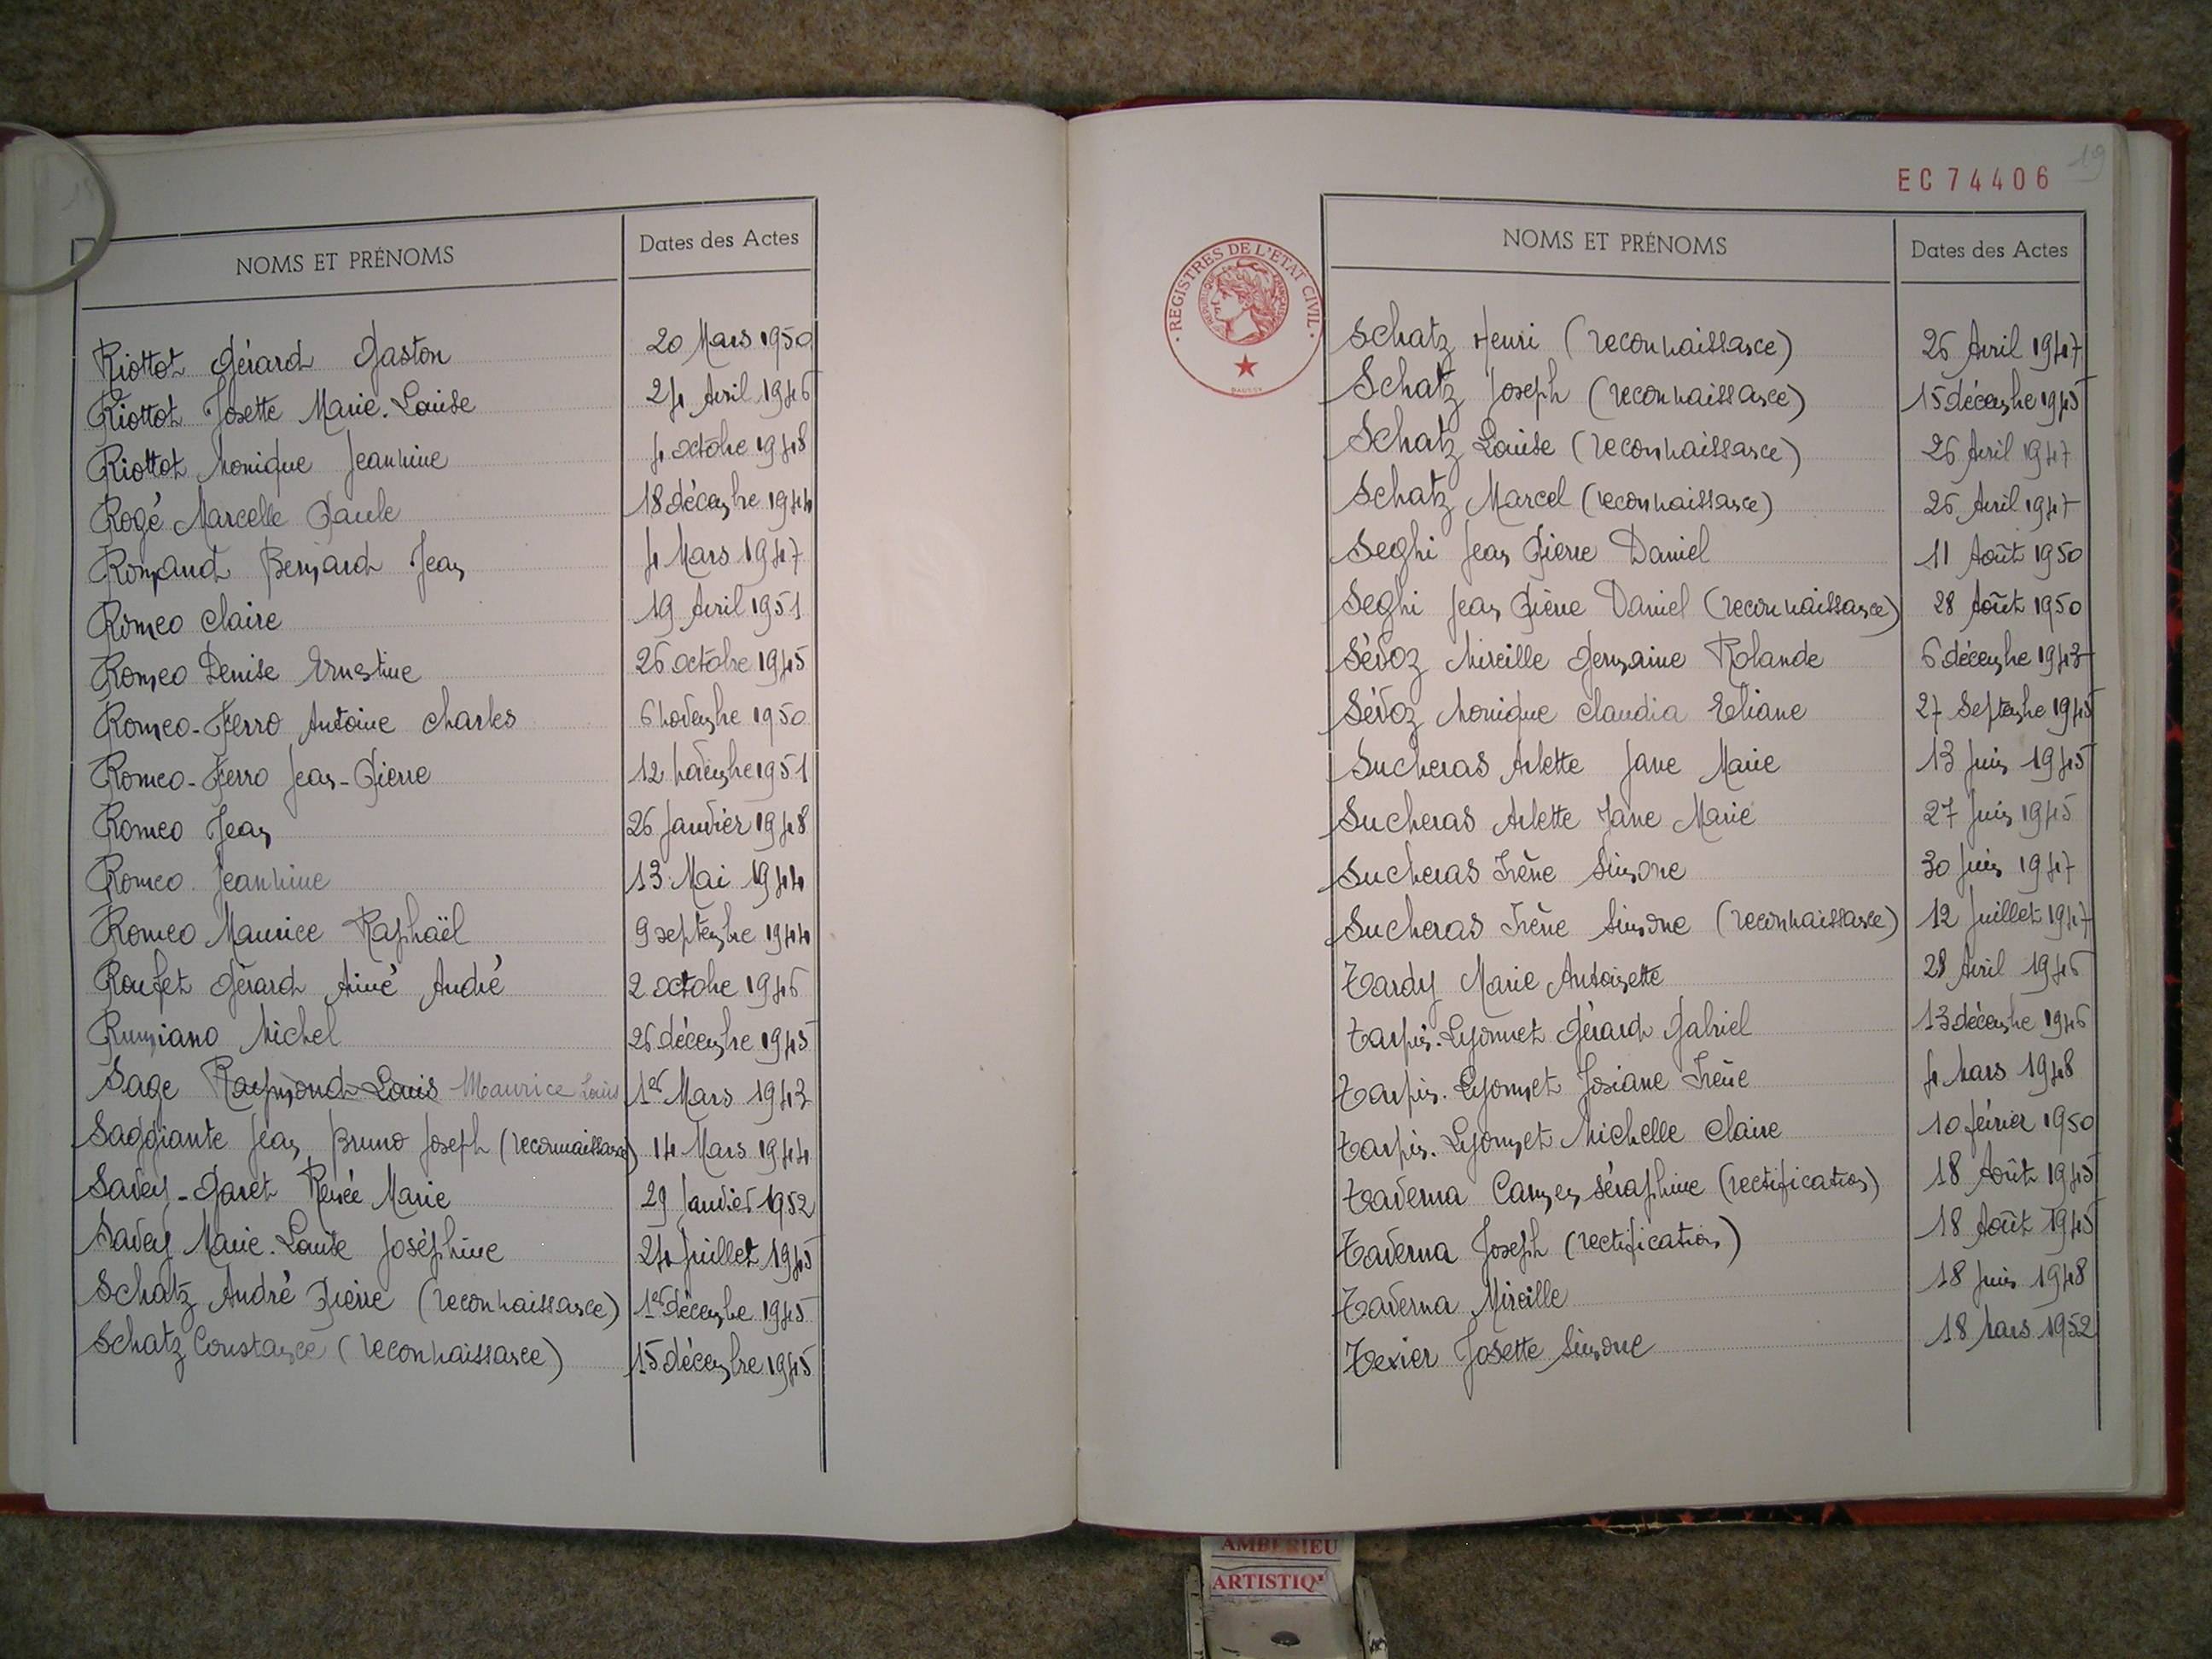 NOMS ET PRÉNOMS Dates des Actes
Riottot Gérard Gaston 20 Mars 1950
Riottot Josette Marie-Louise 24 Avril 1946
Riottot Monique Jeannine 4 octobre 1948
Rogé Marcelle Paule 18 décembre 1944
Romand Bernard Jean 4 Mars 1947
Romeo Claire 19 Avril 1951
Romeo Denise Ernestine 26 octobre 1945
Romeo-Ferro Antoine Charles 6 novembre 1950
Romeo-Ferro Jean-Pierre 12 novembre 1951
Romeo Jean 26 Janvier 1948
Romeo Jeannine 13 Mai 1944
Romeo Maurice Raphaël 9 septembre 1944
Roufet Gérard Aimé André 2 octobre 1946
Rumiano Michel 26 décembre 1945
Sage Raymond Louis Maurice Louis 1er Mars 1943
Saggiante Jean Bruno Joseph (reconnaissance) 14 Mars 1944
Savey-Garet Renée Marie 29 Janvier 1952
Savey Marie-Louise Joséphine 24 Juillet 1945
Schatz André Pierre (reconnaissance) 1er décembre 1945
Schatz Constance (reconnaissance) 15 décembre 1945
EC 74406
19
REGISTRES DE L'ETAT CIVIL
REPUBLIQUE FRANÇAISE
NOMS ET PRÉNOMS Dates des Actes
Schatz Henri (reconnaissance) 26 Avril 1947
Schatz Joseph (reconnaissance) 15 décembre 1945
Schatz Louise (reconnaissance) 26 Avril 1947
Schatz Marcel (reconnaissance) 26 Avril 1947
Seghi Jean Pierre Daniel 11 Août 1950
Seghi Jean Pierre Daniel (reconnaissance) 28 Août 1950
Sévoz Mireille Germaine Rolande 6 décembre 1943
Sévoz Monique Claudia Eliane 27 Septembre 1945
Sucheras Arlette Jane Marie 13 Juin 1945
Sucheras Arlette Jane Marie 27 Juin 1945
Sucheras Irène Simone 30 Juin 1947
Sucheras Irène Simone (reconnaissance) 12 Juillet 1947
Tardy Marie Antoinette 28 Avril 1946
Tarpin-Lyonnet Gérard Gabriel 13 décembre 1946
Tarpin-Lyonnet Josiane Irène 4 Mars 1948
Tarpin-Lyonnet Michelle Claire 10 février 1950
Taverna Carmen Séraphine (rectification) 18 Août 1945
Taverna Joseph (rectification) 18 Août 1945
Taverna Mireille 18 Juin 1948
Texier Josette Simone 18 Mars 1952
AMBERIEU
ARTISTIQ